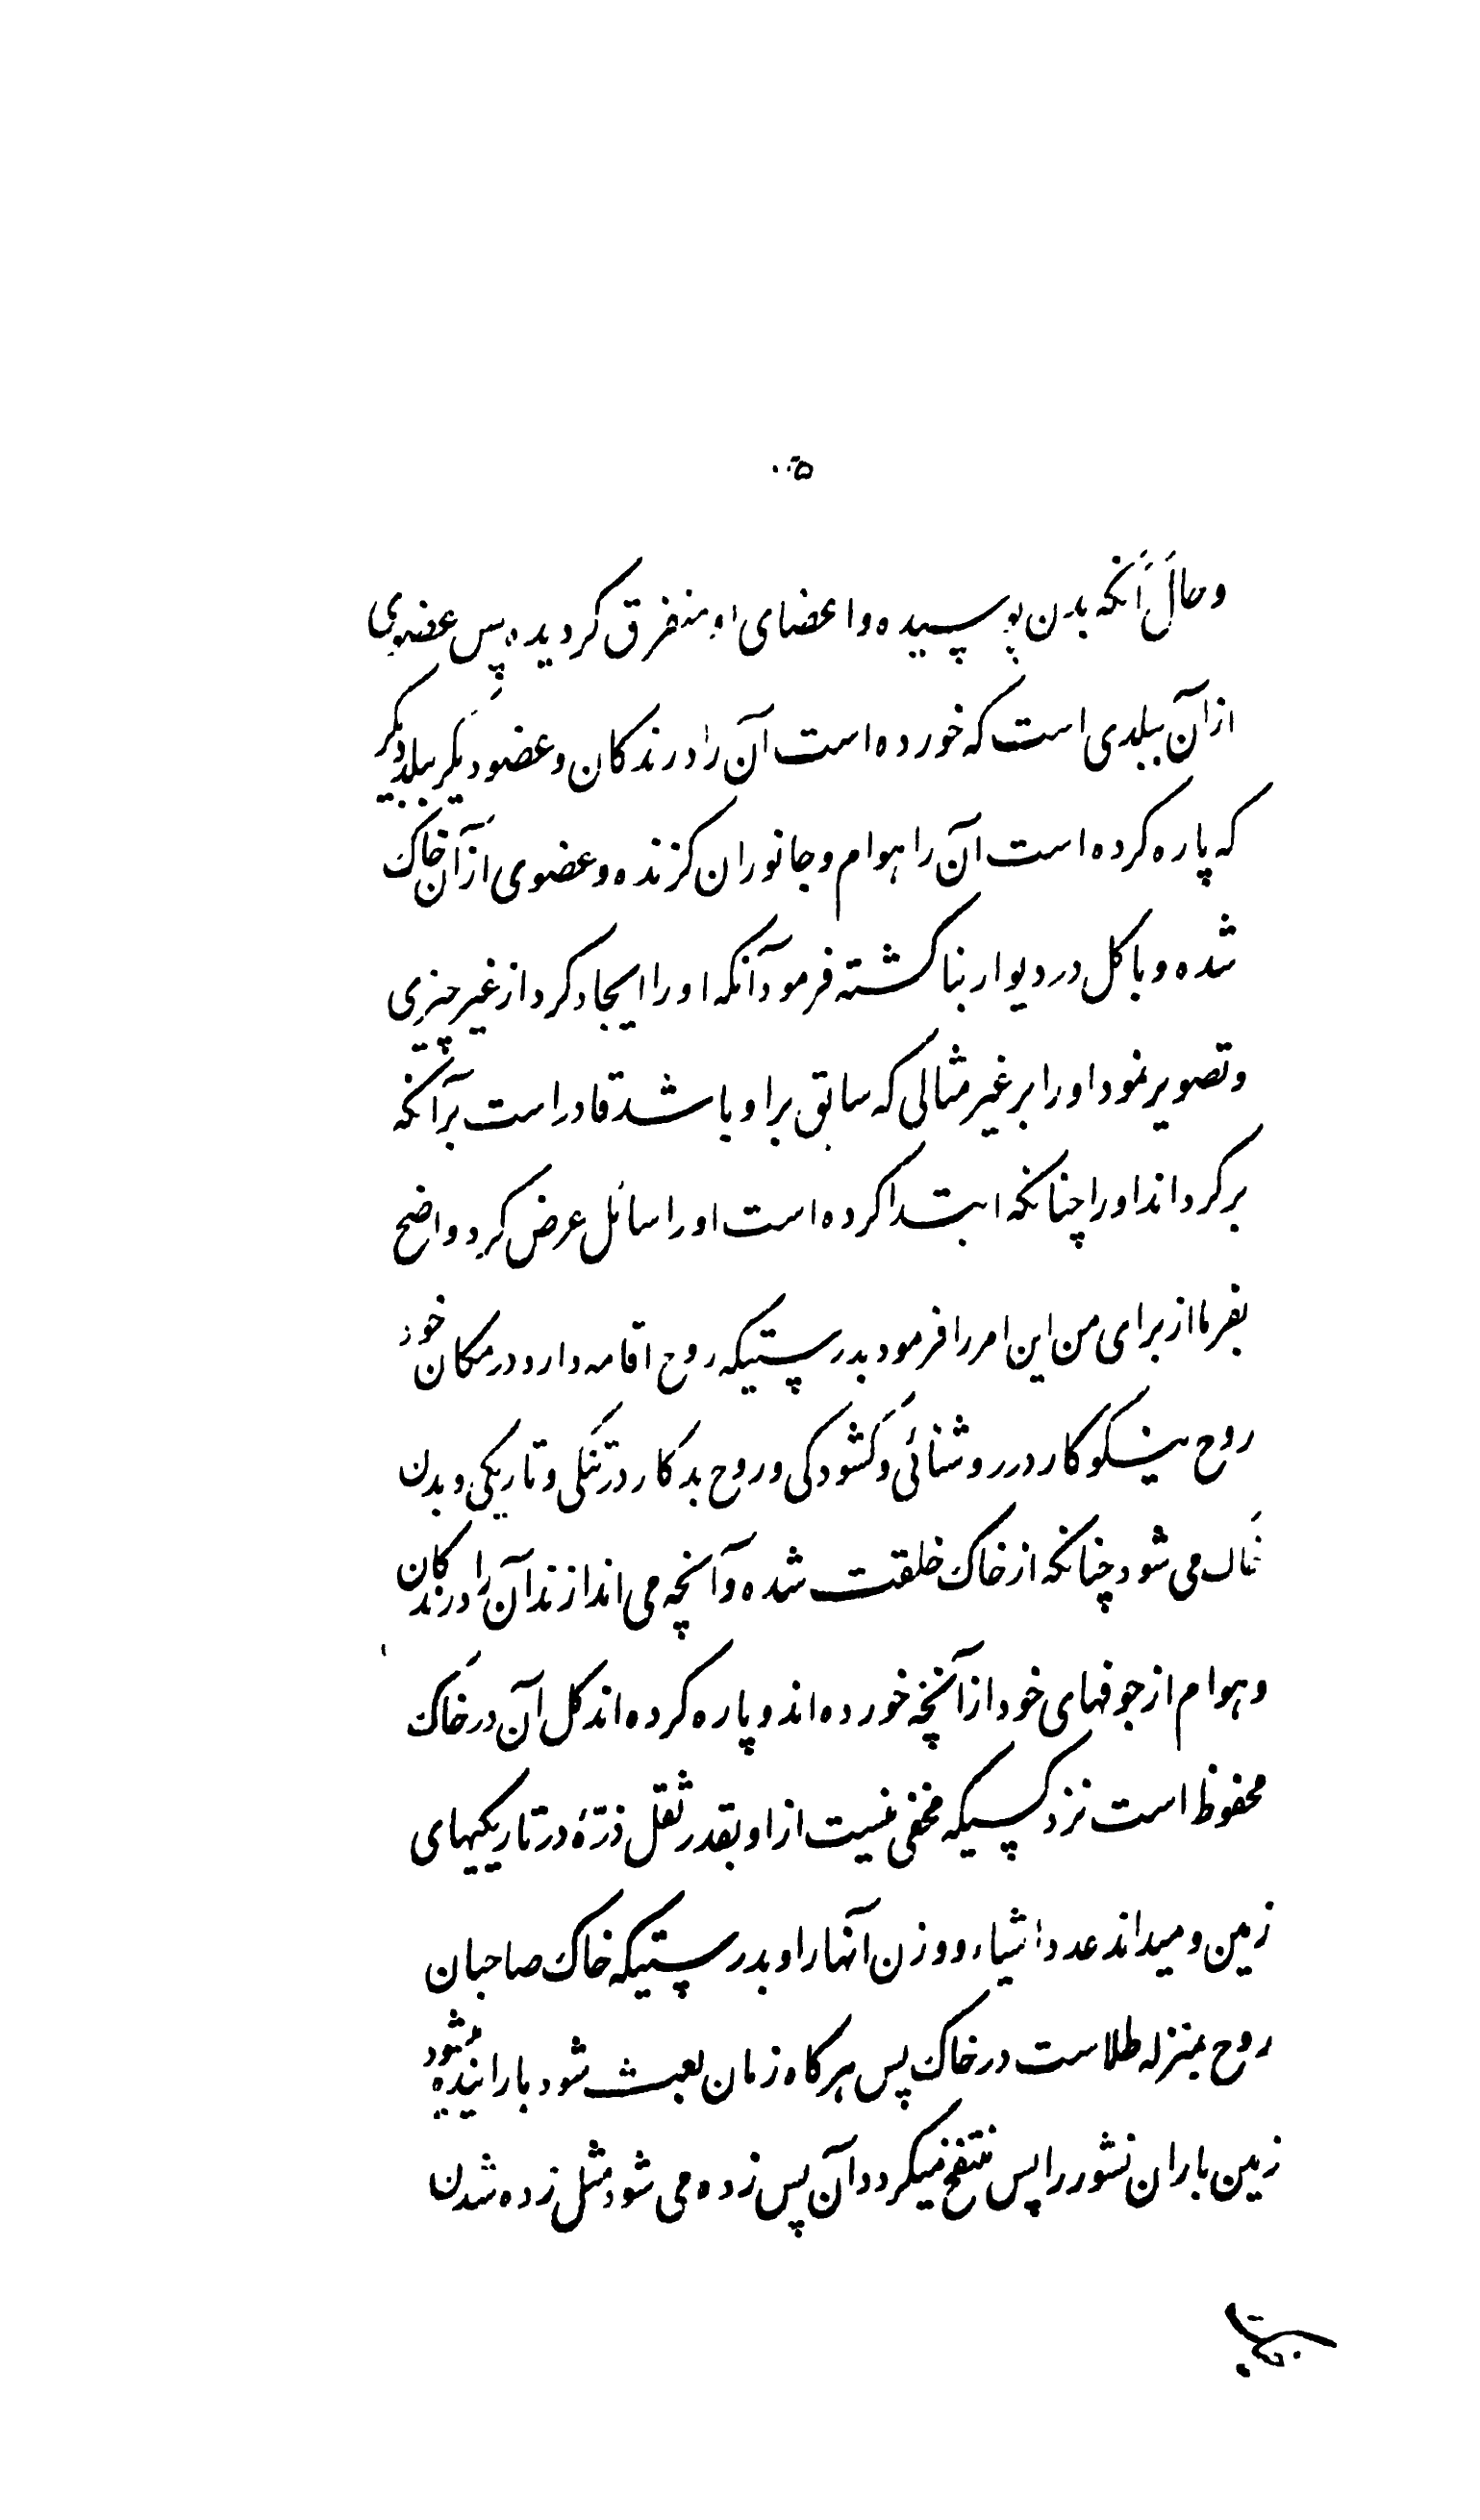 ۵۰۰
و حال آنکه بدن پوسیده و اعضای او متفرق کردیده پس عضوی
از آن ببلدی است که خورده است آن را درندکان و عضو دیکر ببلد دیکر
که پاره کرده است آن را هوام و جانوران کزنده و عضوی از آن خاک
شده و با کل در دیوار بنا کشته فرمود آنکه او را ایجاد کرد از غیر چیزی
و تصویر نمود او را بر غیر مثالی که سابق بر او باشد قادر است بر آنکه
بر کرداند او را چنانکه ابتدا کرده است او را سائل عرض کرد واضح
بفرما از برای من این امر را فرمود بدرستیکه روح اقامه دارد در مکان خود
روح نیکوکار در روشنائی و کشودکی و روح بدکار در تنکی و تاریکی و بدن
خاک می شود چنانکه از خاک خلقت شده و آنچه می اندازند آن را درندکان
و هوام از جوفهای خود از آنچه خورده اند و پاره کرده اند کل آن در خاک
محفوظ است نزد کسیکه مخفی نیست از او بقدر ثقل ذرّهٔ در تاریکیهای
زمین و میداند عدد اشیاء و وزن آنها را و بدرستیکه خاک صاحبان
روح بمنزله طلاست در خاک پس هر کاه زمان بعث شود باراننده میشود
زمین باران نشور را پس منتفخ میکردد آن پس زده می شود مثل زده شدن